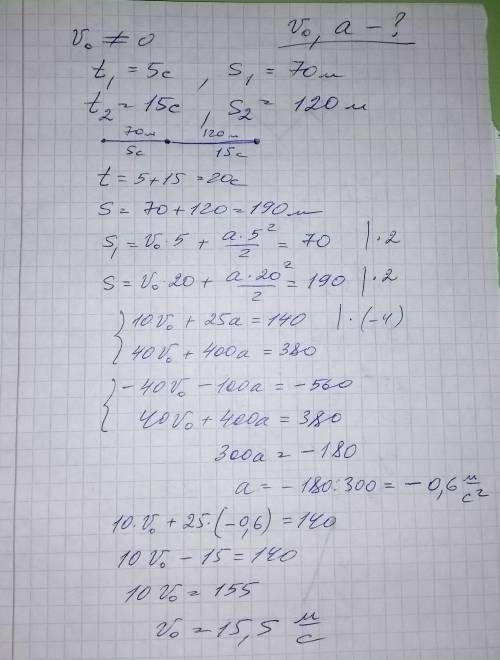 v₀ ≠ 0    v₀, a - ?
t₁ = 5с , s₁ = 70м
t₂ = 15с , s₂ = 120м
70м 120м
5с 15с
t = 5+15 = 20с
s = 70 + 120 = 190м
s₁ = v₀·5 + a·5²/2 = 70 |·2
s = v₀·20 + a·20²/2 = 190 |·2
{ 10v₀ + 25a = 140 |·(-4)
40v₀ + 400a = 380
{ -40v₀ - 100a = -560
40v₀ + 400a = 380
300a = -180
a = -180:300 = -0,6 м/с²
10·v₀ + 25·(-0,6) = 140
10v₀ - 15 = 140
10v₀ = 155
v₀ = 15,5 м/с